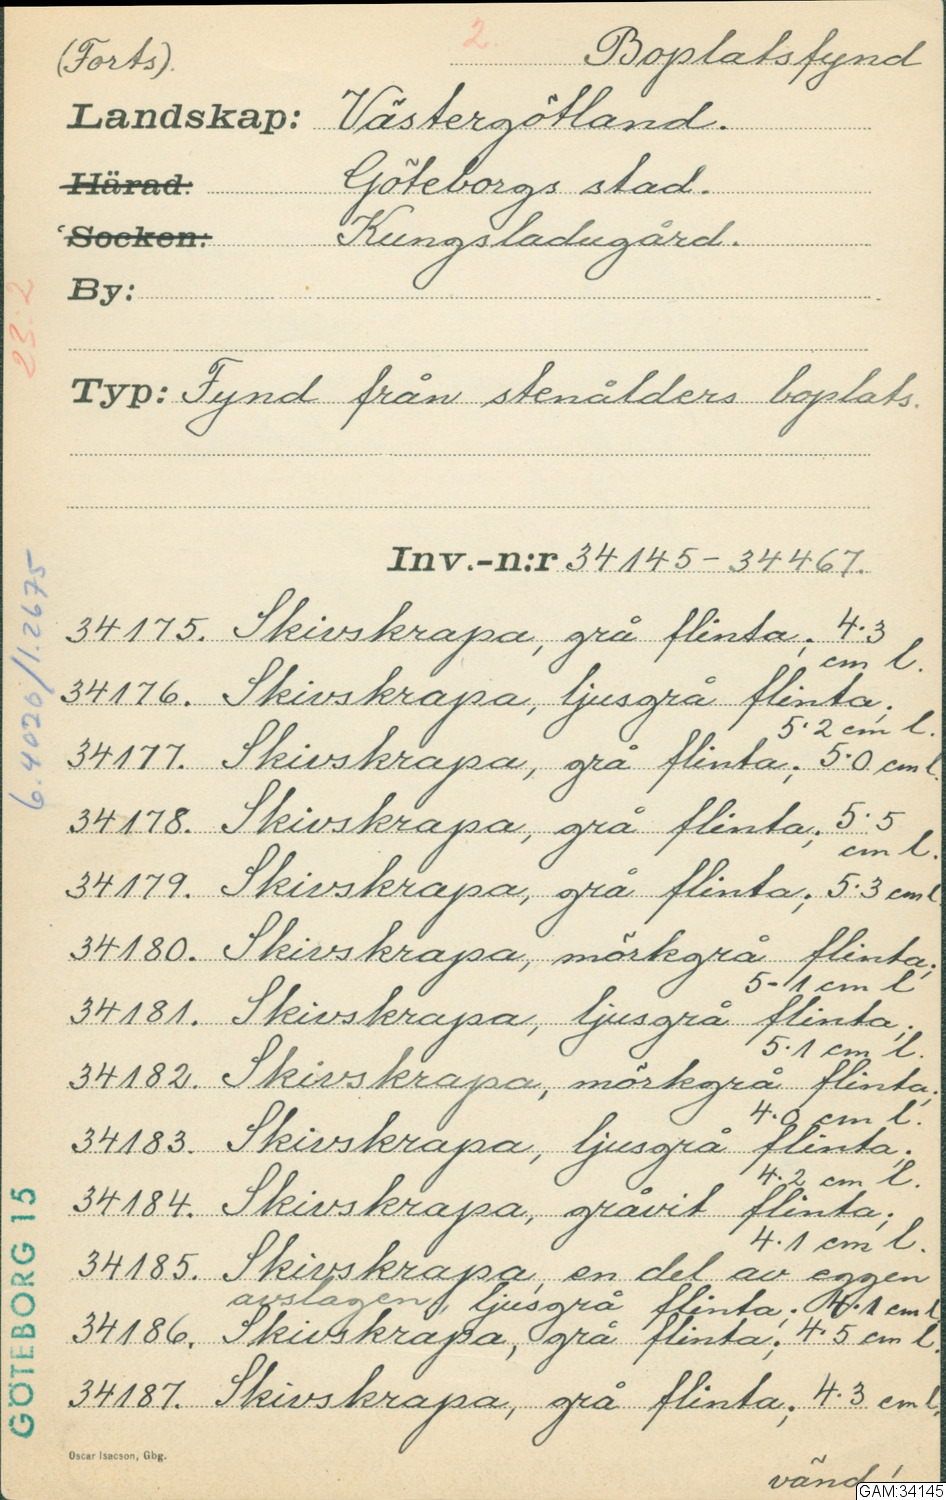 2.
(Forts). Boplatsfynd
Landskap: Västergötland.
Härad: Göteborgs stad.
Socken: Kungsladugård.
By:
Typ: Fynd från stenålders boplats.
Inv.-n:r 34145 – 34467.
34175. Skivskrapa, grå flinta; 4.3
cm l.
34176. Skivskrapa, ljusgrå flinta;
5.2 cm l.
34177. Skivskrapa, grå flinta; 5.0 cm l.
34178. Skivskrapa, grå flinta; 5.5
cm l.
34179. Skivskrapa, grå flinta; 5.3 cm l.
34180. Skivskrapa, mörkgrå flinta;
5.1 cm l
34181. Skivskrapa, ljusgrå flinta;
5.1 cm l.
34182. Skivskrapa, mörkgrå flinta;
4.0 cm l.
34183. Skivskrapa, ljusgrå flinta;
4.2 cm l.
34184. Skivskrapa, gråvit flinta;
4.1 cm l.
34185. Skivskrapa, en del av eggen
avslagen, ljusgrå flinta; 4.1 cm l
34186. Skivskrapa, grå flinta; 4.5 cm l.
34187. Skivskrapa, grå flinta; 4.3 cm l.
Oscar Isacson, Gbg.
vänd!
GAM:34145
23:2
6.4020/1.2675
GÖTEBORG 15